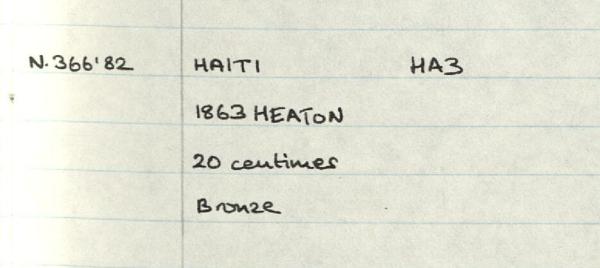 N.366'82 HAITI HA3
1863 HEATON
20 centimes
Bronze